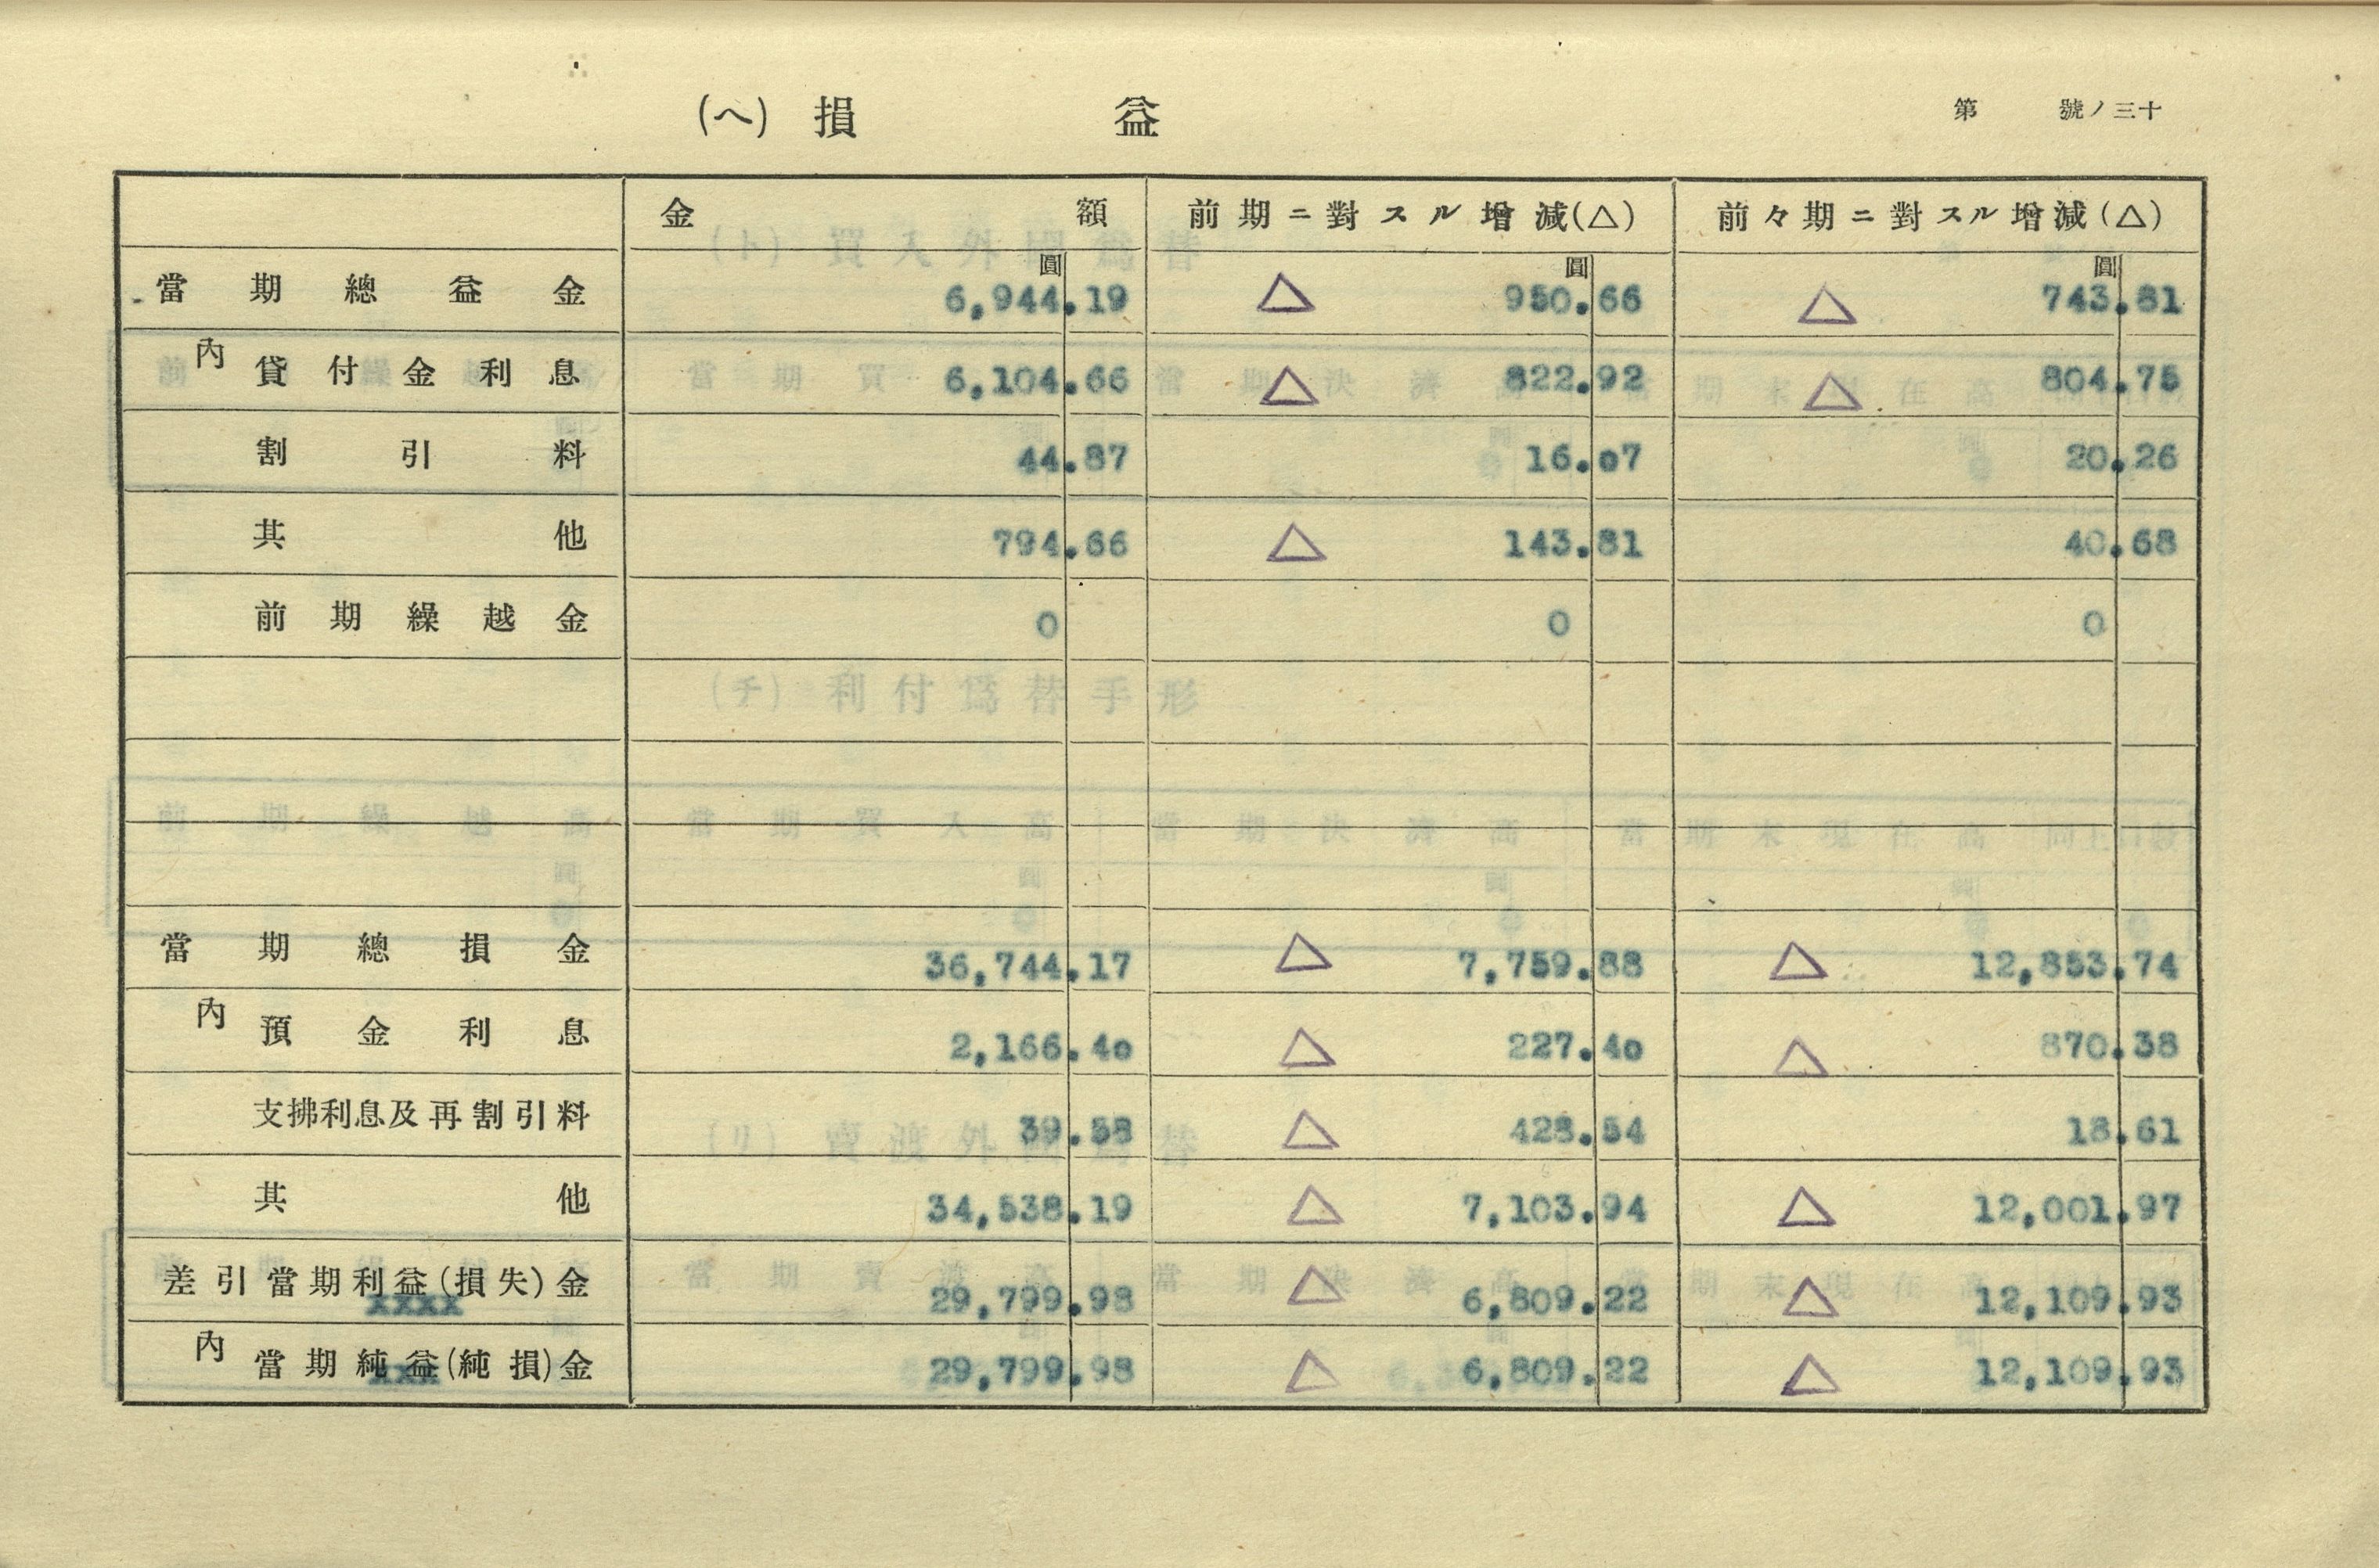 (ヘ) 損 益
第 號ノ三十
金 額 前期ニ對スル增減(△) 前々期ニ對スル增減(△)
圓 圓 圓
當期總益金 6,944.19 △ 950.66 △ 743.81
內 貸付金利息 6,104.66 △ 822.92 △ 804.75
割引料 44.87 16.07 20.26
其他 794.66 △ 143.81 40.68
前期繰越金 0 0 0
當期總損金 36,744.17 △ 7,759.88 △ 12,853.74
內 預金利息 2,166.40 △ 227.40 △ 870.38
支拂利息及再割引料 39.58 △ 428.54 18.61
其他 34,538.19 △ 7,103.94 △ 12,001.97
差引當期利益(損失)金 29,799.98 △ 6,809.22 △ 12,109.93
xxxx
內 當期純益(純損)金 29,799.98 △ 6,809.22 △ 12,109.93
xxx